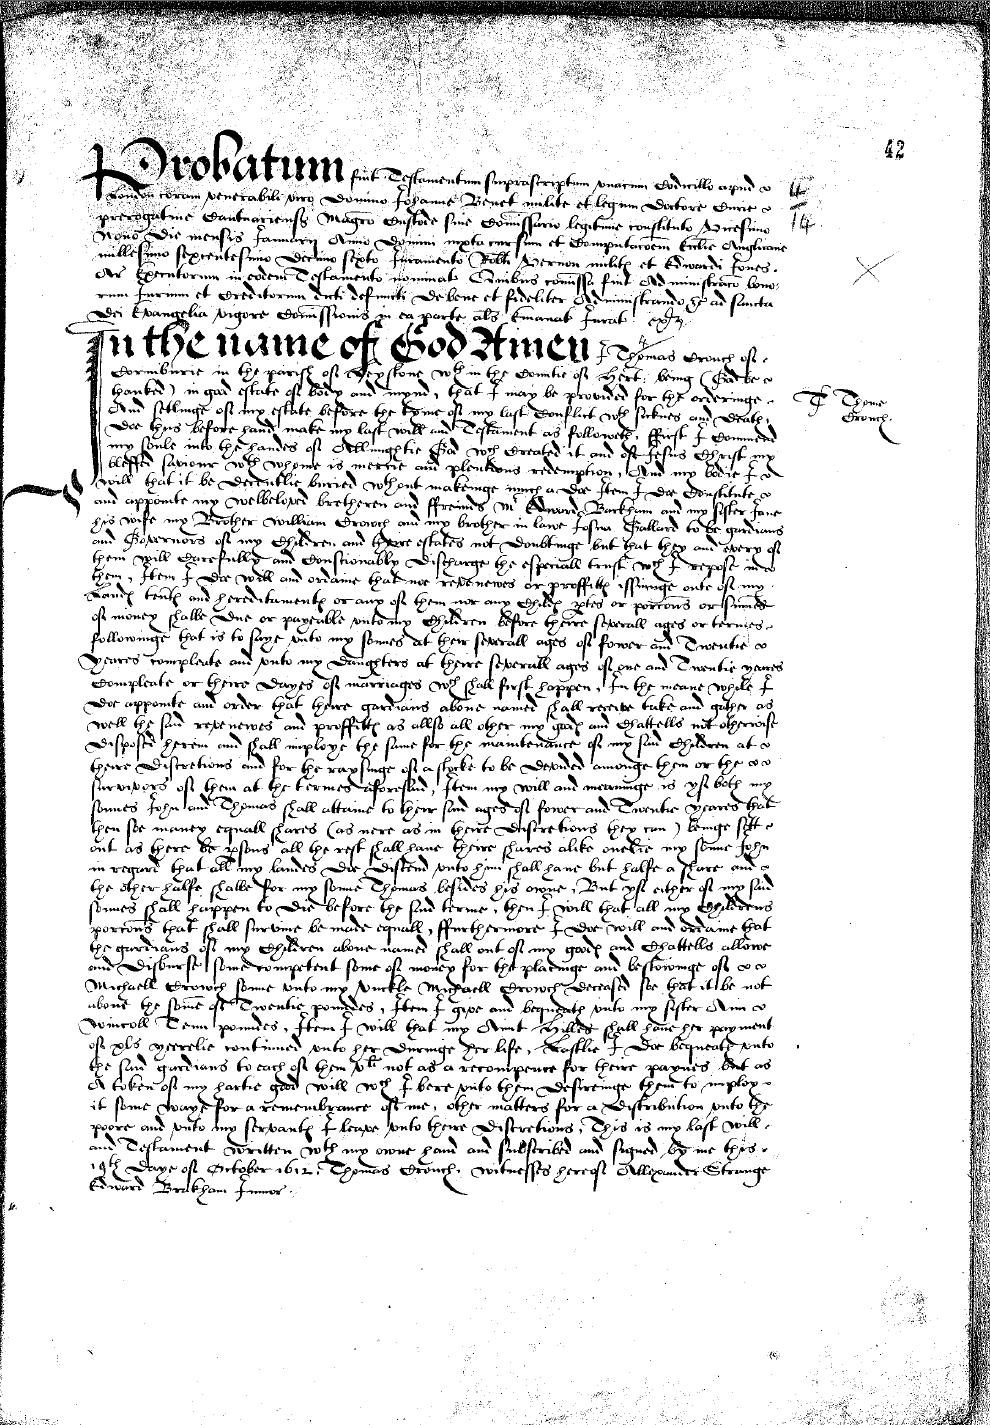 42
Probatum fuit Testamentum suprascriptum vnacum Codicillo apud
London coram venerabili viro Domino Johanne Benet milite et legum Doctore Curie
prerogatiue Cantuariensis Magro Custode siue Comissario legitime constituto Vicesimo
Nono Die mensis Januarij Anno Domini iuxta cursum et Computacoem Ecclie Anglicane
millesimo sexcentesimo Decimo sexto Juramento Robti Vernon militis et Edwardi Jones
Ar Executorum in eodem Testamento nominat Quibus comissa fuit Administraco bono
rum Jurium et Creditorum dicti defuncti De bene et fideliter Administrando &c ad sancta
Dei Evangelia vigore Comissionis in ea parte als Emanat Jurat
In the name of God Amen I Thomas Crouch of
Corniburie in the parish of Leyston wth in the Countie of Hert: being (God be
thanked) in god estate of body and mynd, that I may be provided for the orderinge
And setlinge of my estate before the tyme of my last Conflict wth sicknes and Death,
Doe thus before hand make my last will and Testament as followeth, ffirst I Commend
my soule into the handes of Allmightie God wch Created it and of Jesus Christ my
blessed saviour wth whome is mercie and plentious redemption, And my bodie I
will that it be Decentlie buried wthout makeinge much a doe Item I doe Constitute
and appointe my welbeloved bretheren and ffreinds Mr Edward Barkham and my sister Jane
his wife my Brother William Crowch and my brother in lawe Josua Gallard to be gardians
and Governors of my Children and theire estates not doubtinge but that they and every of
them will Carefully and Constionably Discharge the especiall trust wch I repose in
them, Item I doe will and ordaine that noe revenewes or proffitts issuinge oute of my
Lands tents and hereditaments or any of them nor any Childs ptes or porcons or sumes
of money shalbe Due or payeable vnto my Children before theire severall ages or termes
followinge that is to saye vnto my sonnes at their severall ages of fower and Twentie
yeares compleate and vnto my daughters at theire severall ages of one and Twentie yeares
Compleate or theire Dayes of marriages wch shall first happen, In the meane while I
doe appointe and order that theire gardians aboue named shall receive take and gather as
well the said revenewes and proffitts as allso all other my gods and Chattells not otherwise
disposed herein and shall imploye the same for the maintenance of my said Children at
theire Discretions and for the raysinge of a stocke to be devided amonge them or the
survivors of them at the termes aforesaid, Item my will and meaninge is yf both my
sonnes John and Thomas shall attaine to their said ages of fower and Twentie yeares that
then soe maney equall shares (as nere as in theire discretions they can) beinge sett
out as there be psons all the rest shall haue theire shares alike onelie my sonne John
in regard that all my landes doe discend vnto him shall haue but halfe a share and
the other halfe shalbe for my sonne Thomas besides his owne, But yf either of my said
sonnes shall happen to die before the said terme, then I will that all my Childrens
porcons that shall survive be made equall, ffurthermore I doe will and ordaine that
the gardians of my Children aboue named shall out of my gods and Chattells allowe
and Disburse some competent some of money for the placinge and bestowinge of
Michaell Crowch sonne vnto my Vnckle Michaell Crowch deceased soe that it be not
aboue the some of Twentie poundes, Item I give and bequeath vnto my sister Ann
Wincoll Tenn poundes, Item I will that my Aunt Hilles shall haue her payment
of xls yeerelie continued vnto her duringe her life, Lastlie I doe bequeath vnto
the said gardians to each of them vli not as a recompence for theire paynes but as
A token of my hartie god will wch I bere vnto them desireinge them to imploy
it some waye for a remembrance of me, other matters for a Distribution vnto the
poore and vnto my servants I leave vnto theire Discretions, This is my last will
and Testament written wth my owne hand and subscribed and signed by me this
19th Daye of October 1612: Thomas Crouch. Witnesses hereof Allexander Strange
Edward Brakham Junior.
T Thome
Crouch.